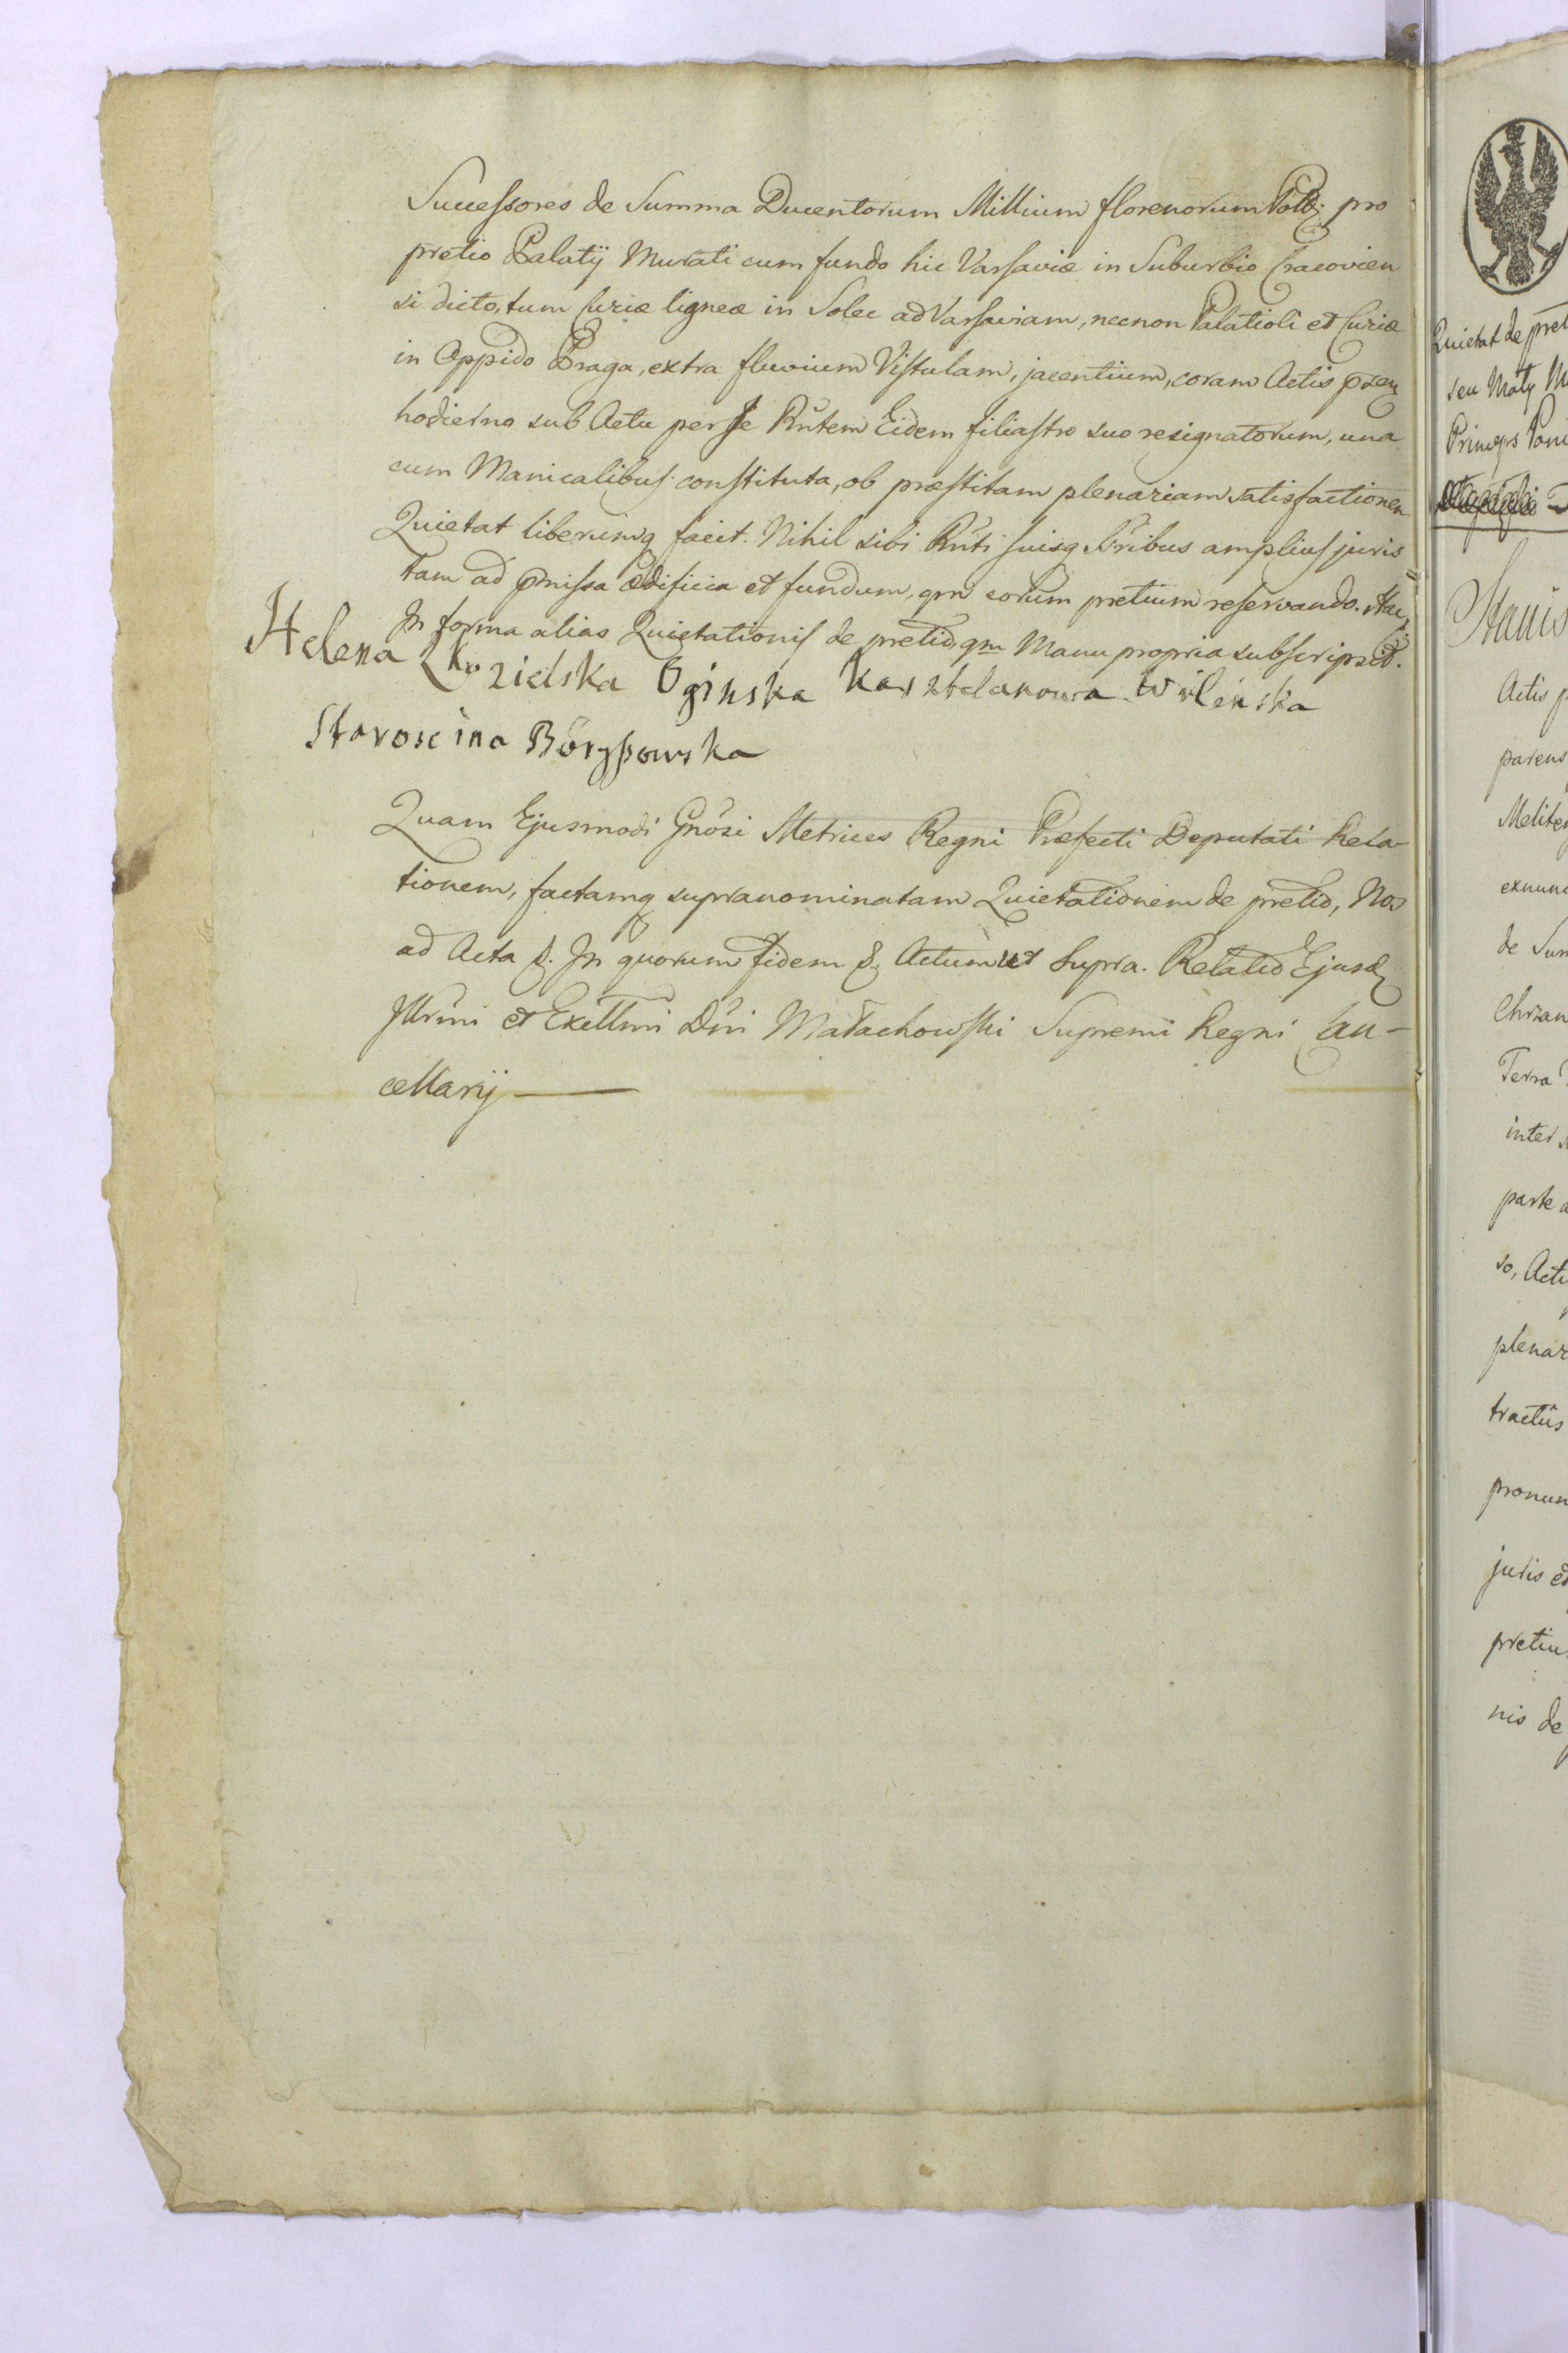 Successores de Summa Ducentorum Millium florenorum Poll; pro
pretio Palatij Murati cum fundo hic Varsaviæ in Suburbio Cracovien
si dicto, tum Curiæ ligneæ in Solec ad Varsaviam, necnon Palatioli et Curiæ
in Oppido Praga, extra fluvium Vistulam, jacentium, coram Actis
hodierno sub Actu per se Rñtem Eidem filiastro suo resignatorum, una
cum Manicalibus constituta, ob præstitam plenariam satisfactionem
Quietat liberumq facit. Nihil sibi Rñti suisq Sribus amplius juris
tam ad pmissa ædificia et fundum, qm eorum pretium reservando.
In forma alias Quietationis de pretio, qm Manu propria subscripsit.
Helena Z Kozielska Oginska Kasztelanowa Wilenska
Staroscina Boryssowska
Quam Ejusmodi Gnosi Metrices Regni Præfecti Deputati Rela-
tionem, factamq supranominatam Quietationem de pretio, Nos
ad Acta &. In quorum fidem &. Actum ut Supra. Relatio Ejusd
Illrmi et Exellmi Dñi Małachowski Supremi Regni Can-
cellarij
Quietat de pret
seu Maty M
Princeps Poni
Stanis
Actis p
parens
Meliten
exnunc
de Sum
Chrzan
Terra
inter
parte a
so, Acti
plenar
tractûs
pronun
juris et
pretiu
nis de